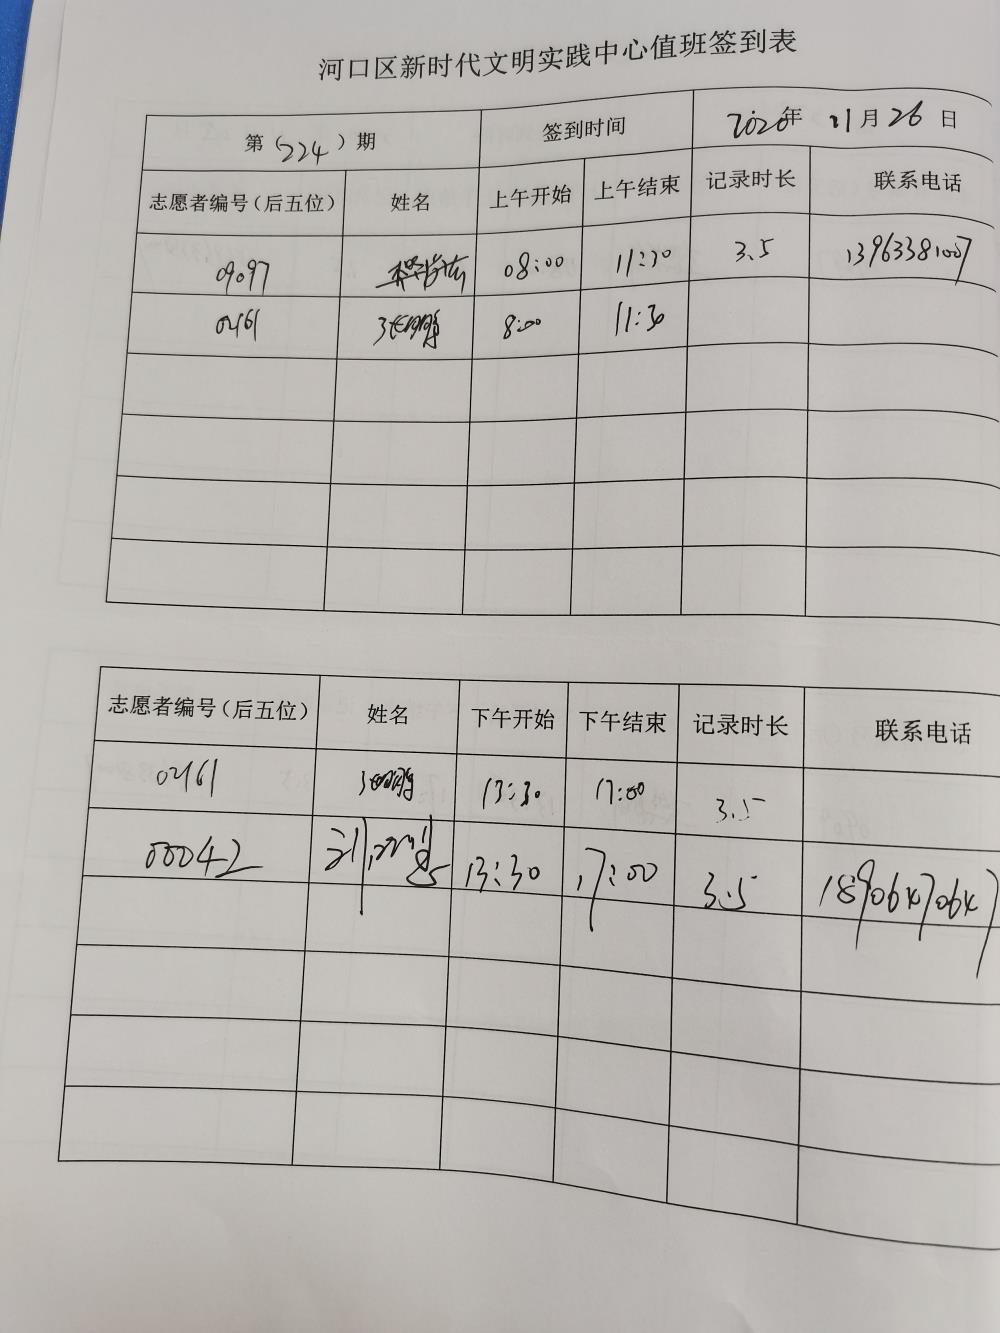 河口区新时代文明实践中心值班签到表
第（224）期 签到时间 2020年 11月26日
志愿者编号（后五位） 姓名 上午开始 上午结束 记录时长 联系电话
09097 08:00 11:30 3.5 13963381007
02161 8:00 11:30
志愿者编号（后五位） 姓名 下午开始 下午结束 记录时长 联系电话
02161 13:30 17:00 3.5
00042 13:30 17:00 3.5